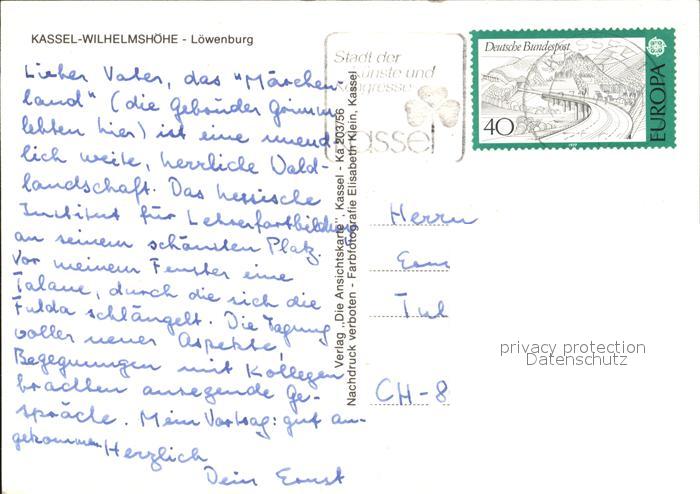 KASSEL-WILHELMSHÖHE - Löwenburg
Lieber Vater, das "Märchen-
land" (die Gebrüder Grimm
lebten hier) ist eine unend-
lich weite, herrliche Wald-
landschaft. Das hessische
Institut für Lehrerfortbildung
an seinem schönsten Platz.
Vor meinem Fenster eine
Talaue, durch die sich die
Fulda schlängelt. Die Tagung
voller neuer Aspekte,
Begegnungen mit Kollegen
brachten anregende Ge-
spräche. Mein Vortrag: gut an-
gekommen Herzlich
Dein Ernst
Verlag „Die Ansichtskarte", Kassel - Ka 203/56
Nachdruck verboten - Farbfotografie Elisabeth Klein, Kassel
Stadt der
Künste und
Kongresse
Kassel
Deutsche Bundespost
40
EUROPA
1977
Herrn
CH-8
privacy protection
Datenschutz